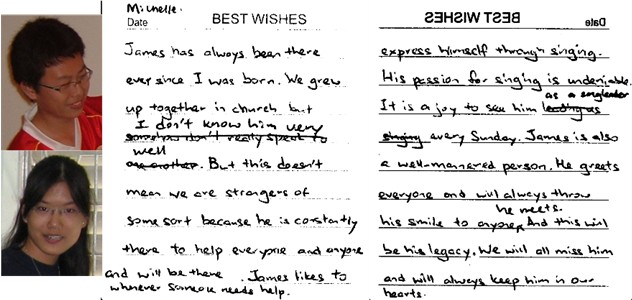 Michelle.
Date BEST WISHES
James has always been there
ever since I was born. We grew
up together in church but
I don't know him very
somehow don't really speak to
well
one another. But this doesn't
mean we are strangers of
some sort because he is constantly
there to help everyone and anyone
and will be there . James likes to
whenever someone needs help.
BEST WISHES Date
express himself through singing.
His passion for singing is undeniable.
as a songleader
It is a joy to see him leading as
singing every Sunday. James is also
a well-mannered person. He greets
everyone and will always throw
he meets.
his smile to anyone. And this will
be his legacy. We will all miss him
and will always keep him in our
hearts.